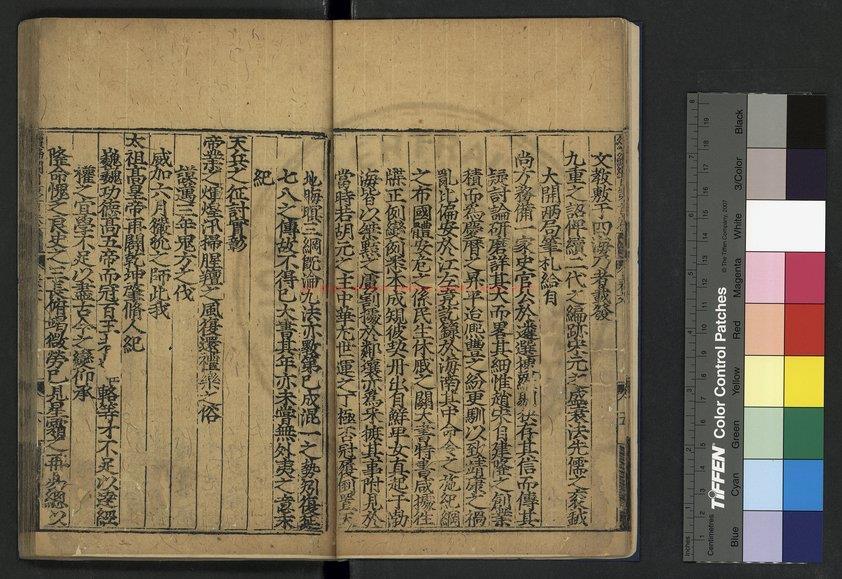 文教敷于四海乃者載發
九重之詔俾續一代之編跡宋元之盛衰法先儒之
大開兩局筆札給自
尚方務備一家史官公於遴選
存其信而傳其
討論研磨詳其大而畧其細惟趙宋自建隆之創業
積而為慶曆之昇平治熙豐之紛更馴以致靖康之禍
亂比偏安於江左竟訖籙於海南其中命令之施紀綱
之布國體安危之係民生休戚之關大書特書咸據往
牒正例變例悉本成規彼契丹出自鮮卑女真起于渤
海皆以
當時若胡元之主中華尤世運之丁極否冠履倒置天
地晦冥三綱既淪九法亦斁第已成混一之勢矧復延
七八之傳故不得已大書其年亦未嘗無外夷之意末
紀
天兵之征討實彰
帝業之輝煌汛掃腥羶之風復還禮樂之俗
議遇三年鬼方之伐
威加六月玁狁之師此我
太祖高皇帝再闢乾坤肇脩人紀
巍巍功德高五帝而冠百王
輅等才不足以達經
權之宜學不足以盡古今之變仰承
隆命愧乏良史之三長俯竭微勞已見星霜之再
TIFFEN Color Control Patches
© The Tiffen Company, 2007
Centimetres
Inches
Blue
Cyan
Green
Yellow
Red
Magenta
White
3/Color
Black